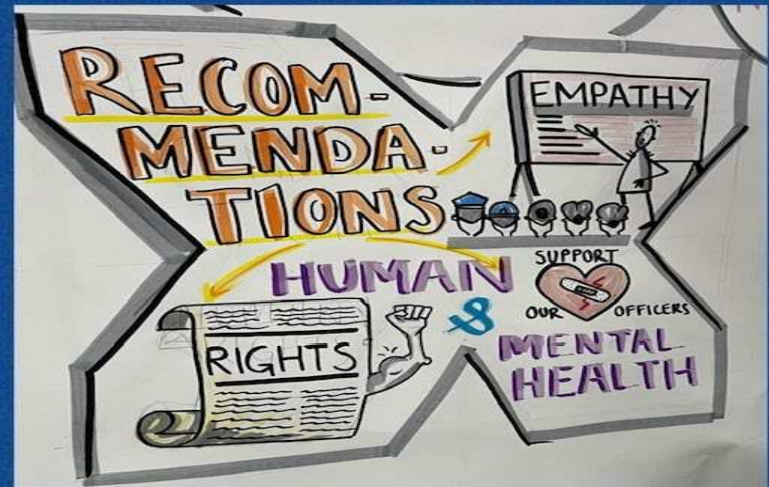 RECOM-
MENDA-
TIONS
EMPATHY
HUMAN
RIGHTS
&
SUPPORT
OUR OFFICERS
MENTAL
HEALTH